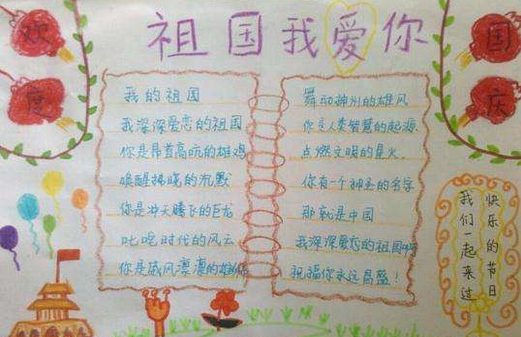 欢度
国庆
祖国我爱你
我的祖国
我深深爱恋的祖国
你是昂首高吭的雄鸡
唤醒拂晓的沉默
你是冲天腾飞的巨龙
叱咤时代的风云
你是威风凛凛的雄狮
舞动神州的雄风
你是人类智慧的起源
点燃文明的星火.
你有一个神圣的名字
那就是中国
我深深爱恋的祖国啊
祝福你永远昌盛!
快乐的节日
我们一起来过